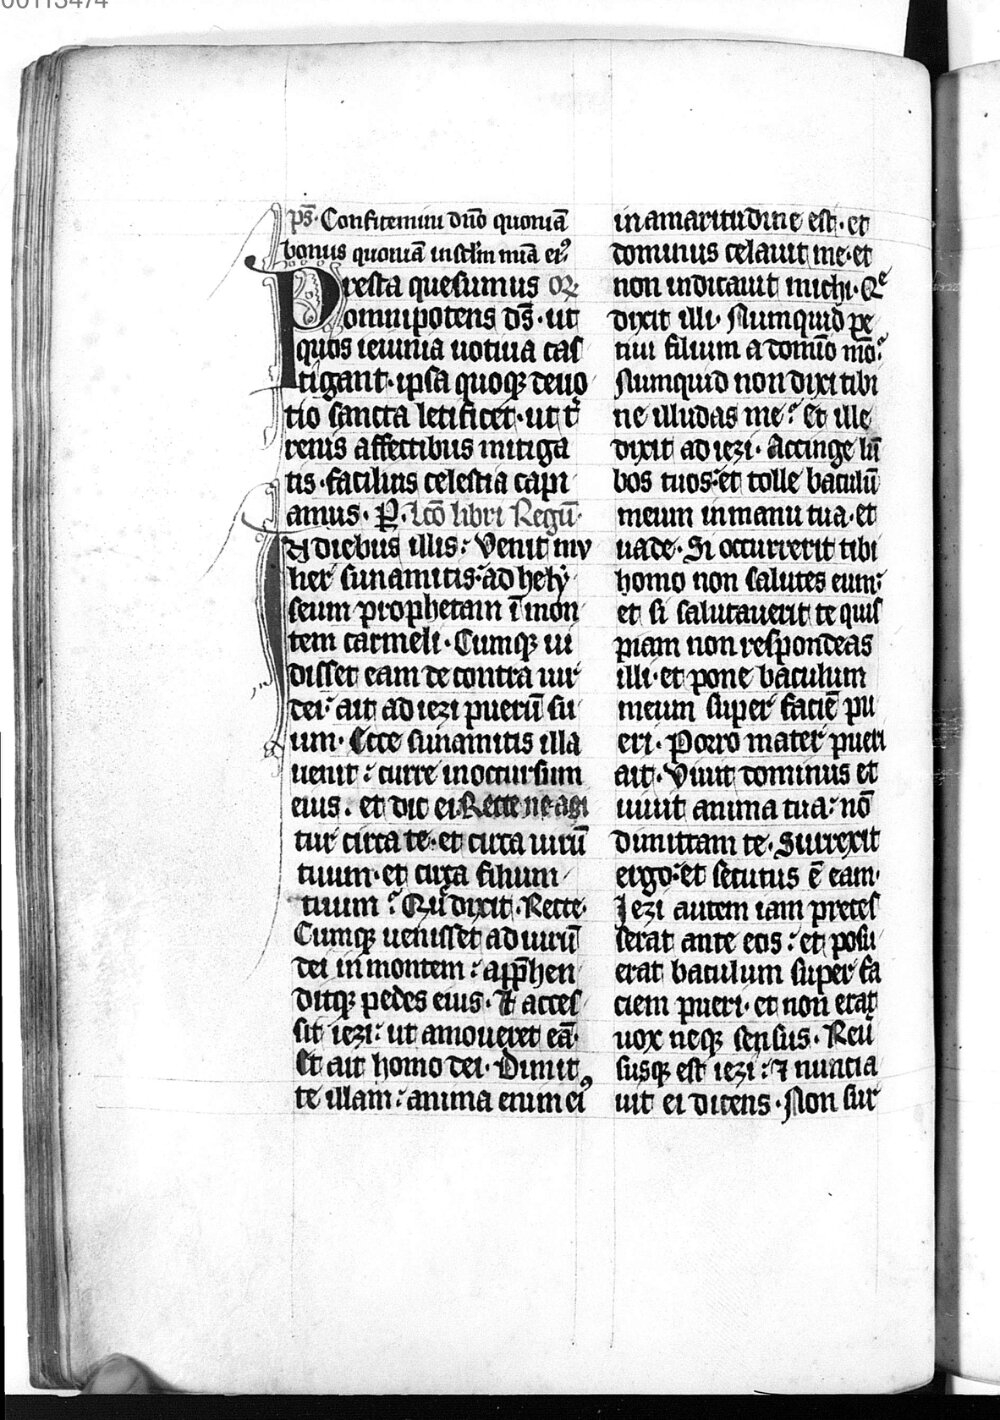 00113474
ps̄· Confitemini dn̄o quoniā
bonus quoniā in sc̄lm mīa ei⁹
Presta quesumus oꝝ
omnipotens ds̄· ut
quos ieiunia uotiua cas
tigant· ipsa quoqꝫ deuo
tio sancta letificet· ut t̄
renis affectibus mitiga
tis· facilius celestia capi
amus· P̲· Lc̄o libri Regū·
In diebus illis: Venit mu
lier sunamitis: ad hely
seum prophetam ī mon
tem carmeli· Cumqꝫ ui
disset eam de contra uir
dei: ait ad iezi puerū su
um· Ecce sunamitis illa
uenit: curre in occursum
eius: et dic ei· Recte ne agi
tur circa te· et circa uirū
tuum· et circa filium
tuum? Que dixit· Recte·
Cumqꝫ uenisset ad uirū
dei in montem: app̄hen
ditqꝫ pedes eius· Et acces
sit iezi: ut amoueret eā·
Et ait homo dei· Dimit
te illam: anima enim ei⁹
in amaritudine est· et
dominus celauit me· et
non indicauit michi· Qͤ
dixit illi· Numquid pe
tiui filium a domīo mō?
Numquid non dixi tibi
ne illudas me? Et ille
dixit ad iezi· Accinge lū
bos tuos: et tolle baculū
meum in manu tua· et
uade· Si occurrerit tibi
homo non salutes eum:
et si salutauerit te quis
piam non respondeas
illi· et pone baculum
meum super faciē pu
eri· Porro mater pueri
ait· Viuit dominus et
uiuit anima tua: nō
dimittam te· Surrexit
ergo: et secutus ē eam·
Iezi autem iam preces
serat ante eos: et posu
erat baculum super fa
ciem pueri· et non erat
uox neqꝫ sensus· Reū
susqꝫ est iezi: ⁊ nuncia
uit ei dicens· Non sur